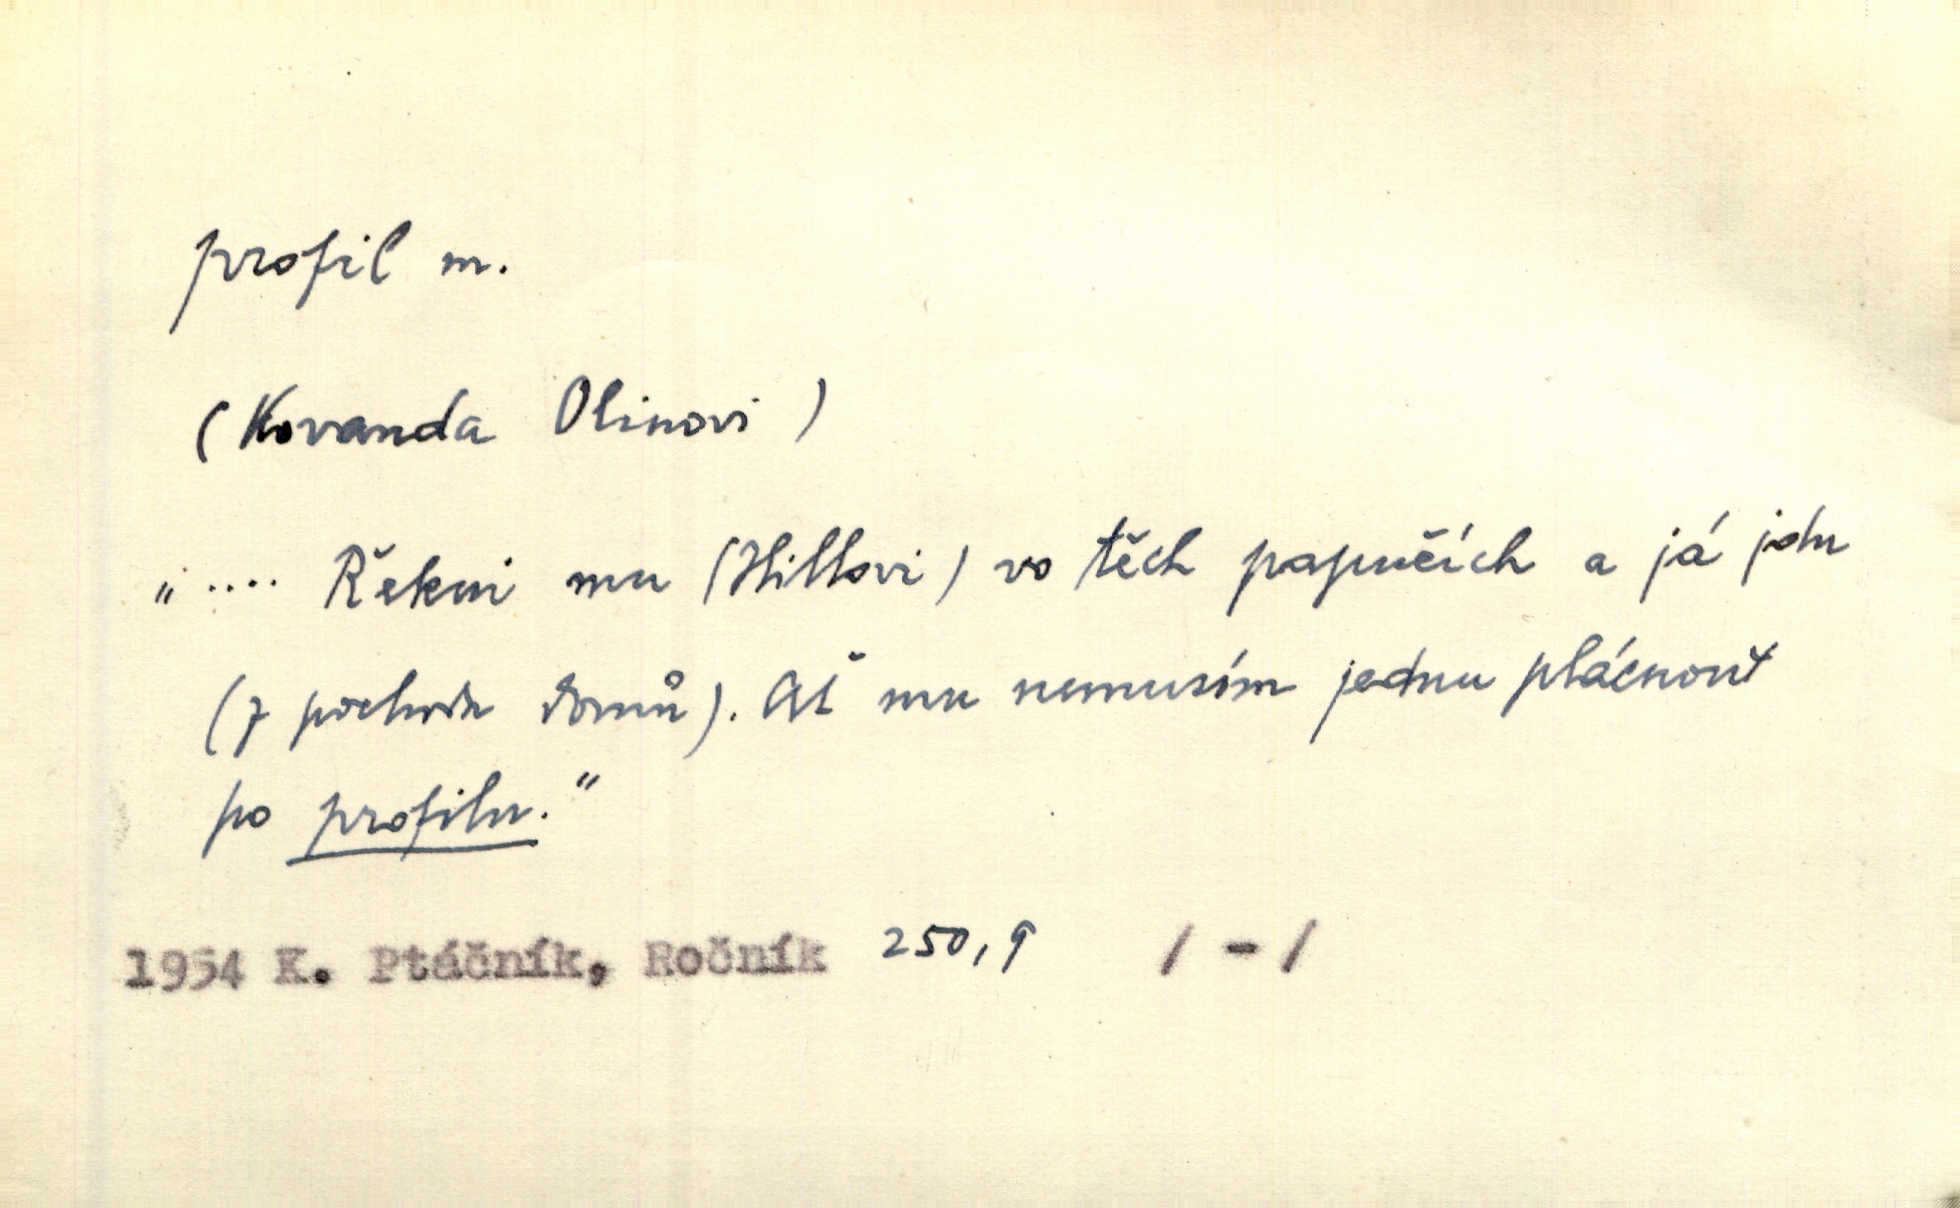 profil m.
(Kovanda Olinovi)
„.... Řekni mu (Hillovi) vo těch papučích a já jdu
(z pochodu domů). Ať mu nemusím jednu plácnout
po profilu."
1954 K. Ptáčník, Ročník 250,9 / - /